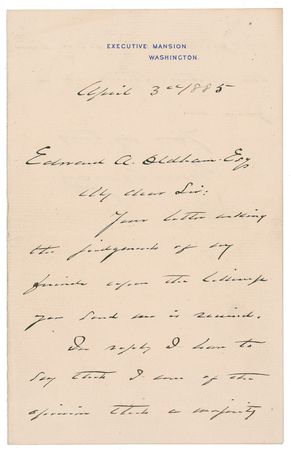 EXECUTIVE MANSION
WASHINGTON
April 3rd, 1885
Edmond A. Oldham Esq
My dear Sir:
Your letter asking
the judgement of my
friends upon the
you send me is received.
In reply I have to
say that I am of the
opinion that a majority